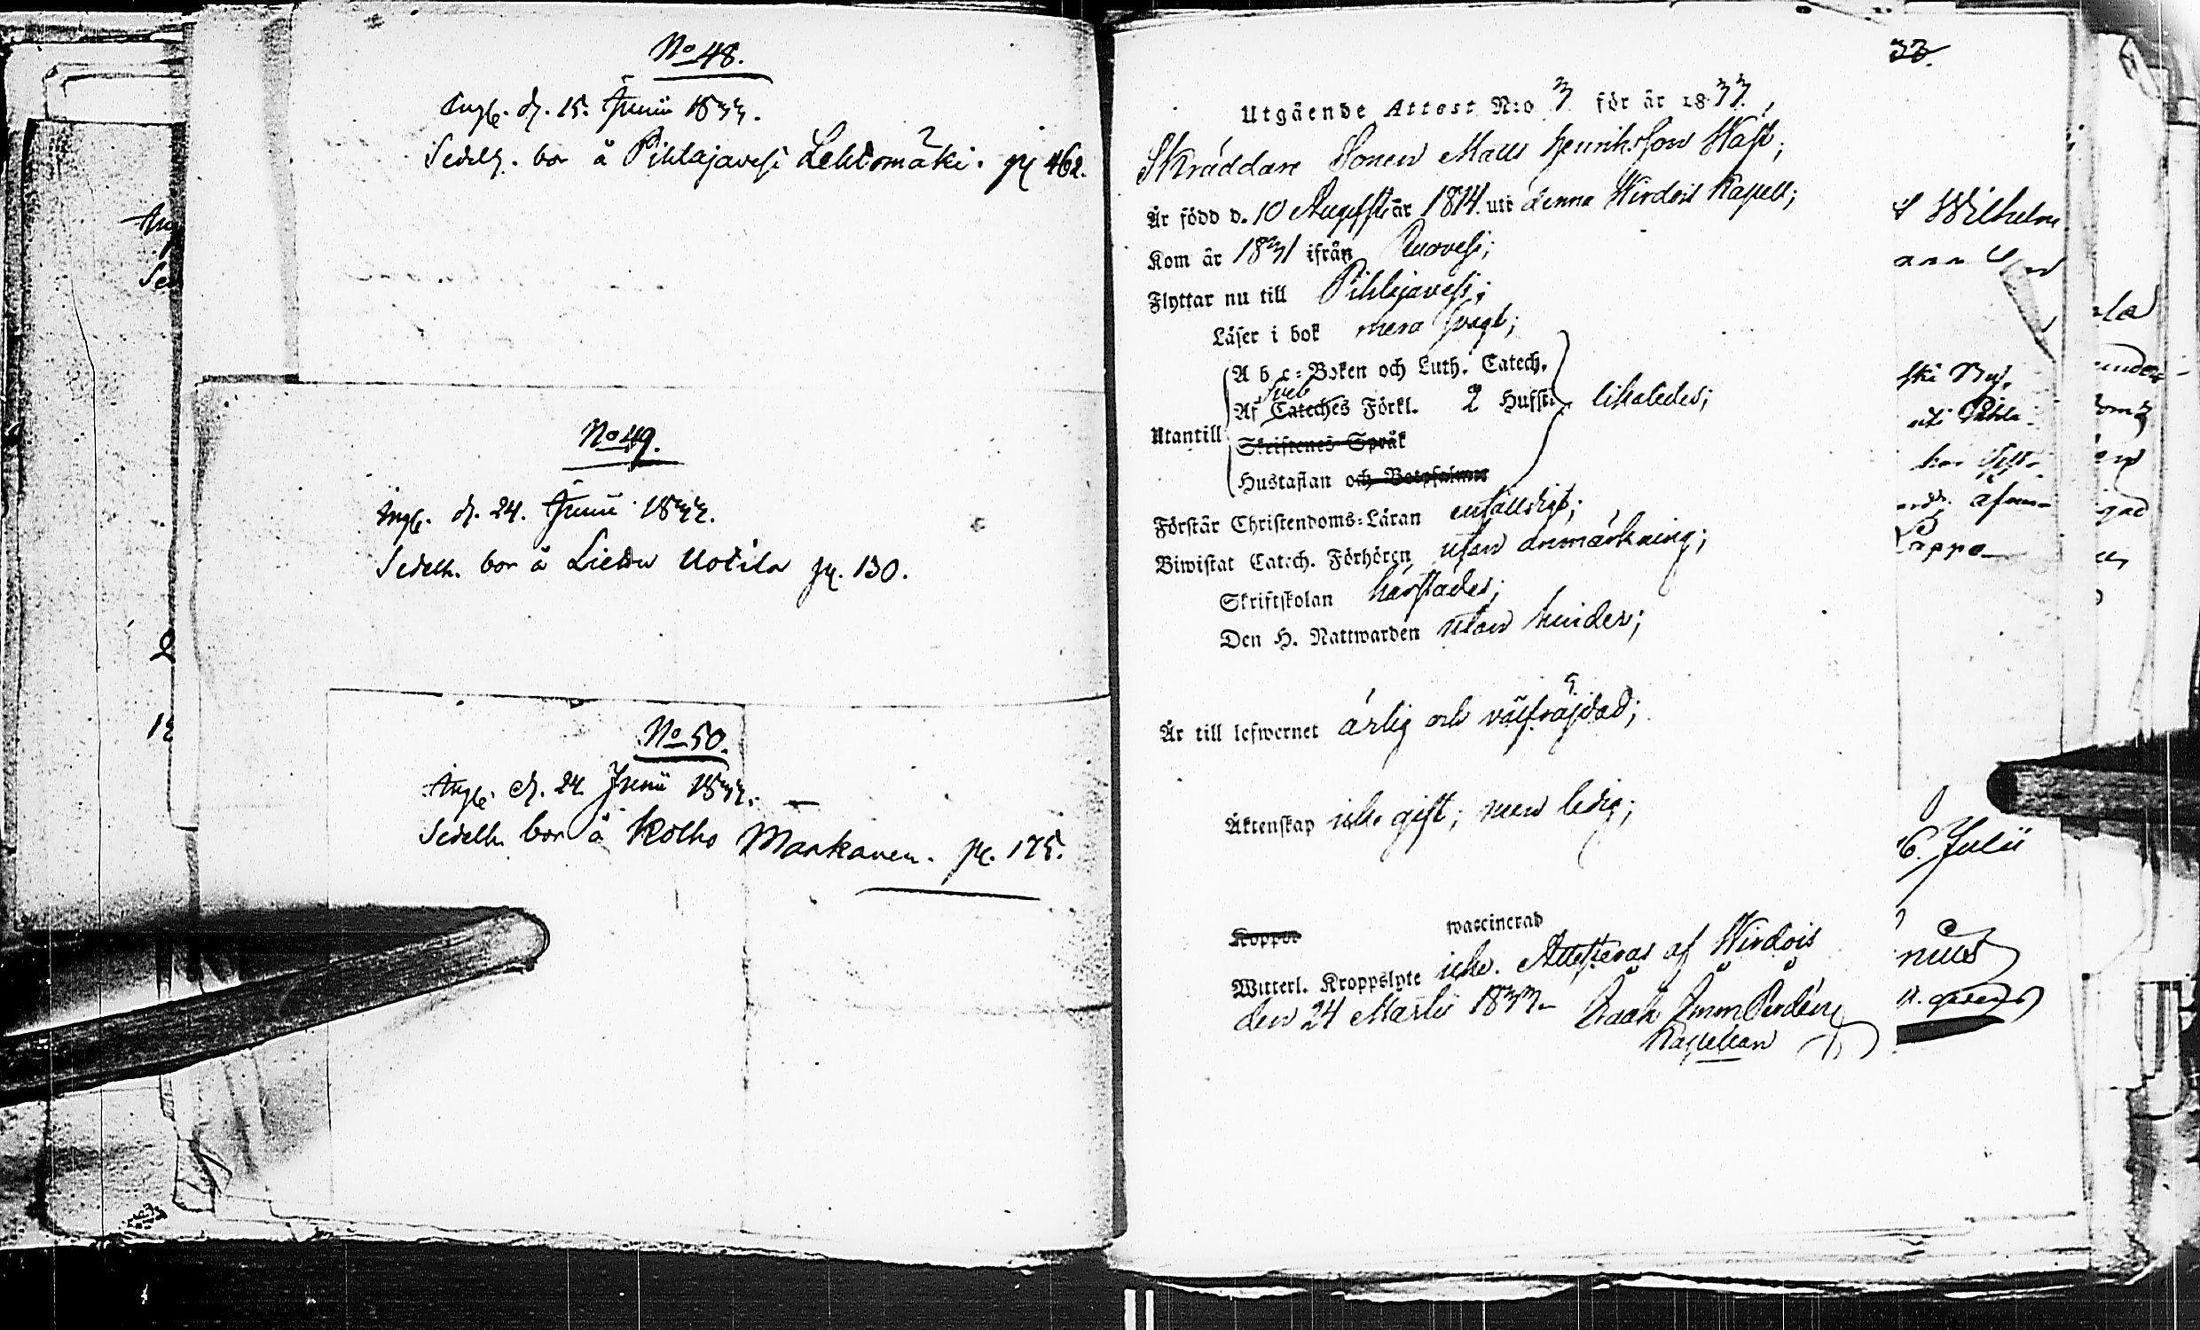 No 48.
Angf. d. 15. Junii 1833.
Sedelh. bor å Pihlajavesi Lehtomäki. pg 462.
No 49.
Angf. d. 24. Junii 1833.
Sedelh. bor å Liehu Uotila pg. 130.
No 50.
Angf. d. 24. Junii 1833.
Sedelh. bor å Kolho Mankanen. pg. 175.
33.
Utgående Attest N:o 3 för år 1833,
Skräddare Sonen Matts Henriksson Wast;
Är född d. 10 Augusti år 1814. uti denna Wirdois Kapell;
Kom år 1831 ifrån Ruovesi;
Flyttar nu till Pihlajavesi;
Läser i bok mera svagt;
Utantill
A b c-Boken och Luth. Catech.
Af Sveb Cateches Förkl. 2 Hufst: likaledes;
Skriftenes Språk
Hustaflan och Botpsalmer
Förstår Christendoms-Läran enfalldigt;
Biwistat Catech. Förhören utan anmärkning;
Skriftskolan härstädes;
Den H. Nattwarden utan hinder;
Är till lefwernet ärlig och välfräjdad;
Äktenskap icke gift; men ledig;
Koppor waccinerad
Witterl. Kroppslyte icke. Attesteras af Wirdois
den 24 Martii 1833. Isaak Imm
Kapellan
Wilhelm
6. Julii